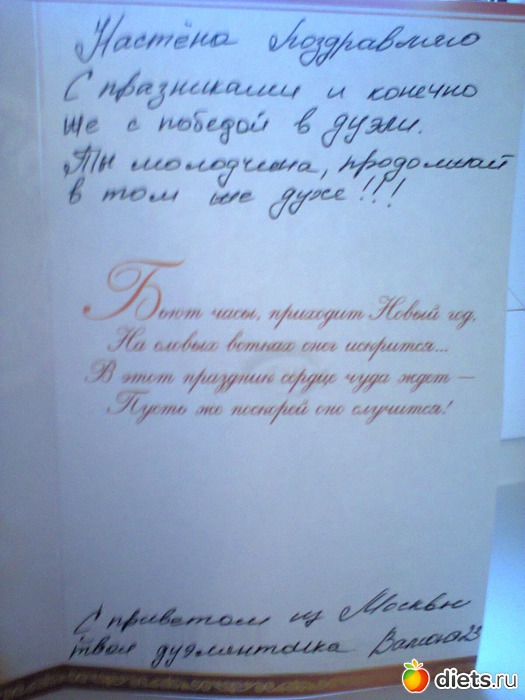 Настёна Поздравляю
С празниками и конечно
же с победой в дуэли.
Ты молодчина, продолжай
в том же духе!!!
Бьют часы, приходит Новый год,
На еловых ветках снег искрится...
В этот праздник сердце чуда ждет —
Пусть же поскорей оно случится!
С приветом из Москвы
твоя дуэлянтша
diets.ru